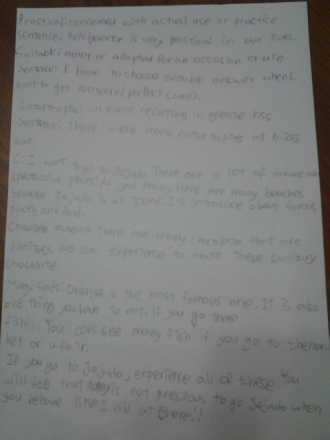 Practical: concerned with actual use or practice
Sentence: Refrigerator is very practical in our lives.
Suitable: meant or adapted for an occasion or use
Sentence: I have to choose suitable answer when I
want to get 100 score (perfect score).
Catastrophe: an event resulting in great loss
Sentence: There were many catastrophes at 6.25
war.
I want to go to Jejudo. There are a lot of
spectacular places. As you know, there are many beaches
because Jejudo is an island. I'll introduce about famous
places and food.
Chocolate museum: There are many chocolate that are
sanitary. We can experience to make these sanitary
chocolate.
Many foods: Orange is the most famous one. It is also
one thing you have to eat, if you go there.
Fish: You can see many fish if you go to the mar-
ket or a fair.
If you go to Jejudo, experience all of these. You
will feel that is not precious to go Jejudo when
you behave like I did at there!!